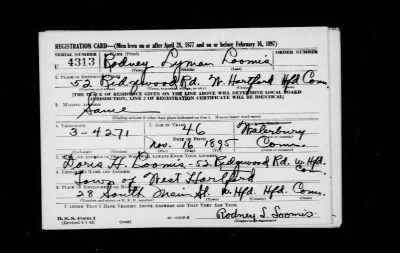 REGISTRATION CARD—(Men born on or after April 28, 1877 and on or before February 16, 1897)
SERIAL NUMBER 1. NAME (Print) ORDER NUMBER
U 4313 Rodney Lyman Loomis
(First) (Middle) (Last)
2. PLACE OF RESIDENCE (Print)
52 Ridgewood Rd. W. Hartford Hfd Conn.
[THE PLACE OF RESIDENCE GIVEN ON THE LINE ABOVE WILL DETERMINE LOCAL BOARD
JURISDICTION; LINE 2 OF REGISTRATION CERTIFICATE WILL BE IDENTICAL]
3. MAILING ADDRESS
Same
4. TELEPHONE 5. AGE IN YEARS 6. PLACE OF BIRTH
3-4271 46 Waterbury
DATE OF BIRTH
Nov. 16 1895 Conn.
7. NAME AND ADDRESS OF PERSON WHO WILL ALWAYS KNOW YOUR ADDRESS
Doris H. Loomis - 52 Ridgewood Rd. W. Hfd. Conn.
8. EMPLOYER'S NAME AND ADDRESS
Town of West Hartford
9. PLACE OF EMPLOYMENT OR BUSINESS
28 South Main St. W. Hfd. Hfd. Conn.
I AFFIRM THAT I HAVE VERIFIED ABOVE ANSWERS AND THAT THEY ARE TRUE.
D. S. S. Form 1
(Revised 4-1-42) (over)
Rodney L. Loomis